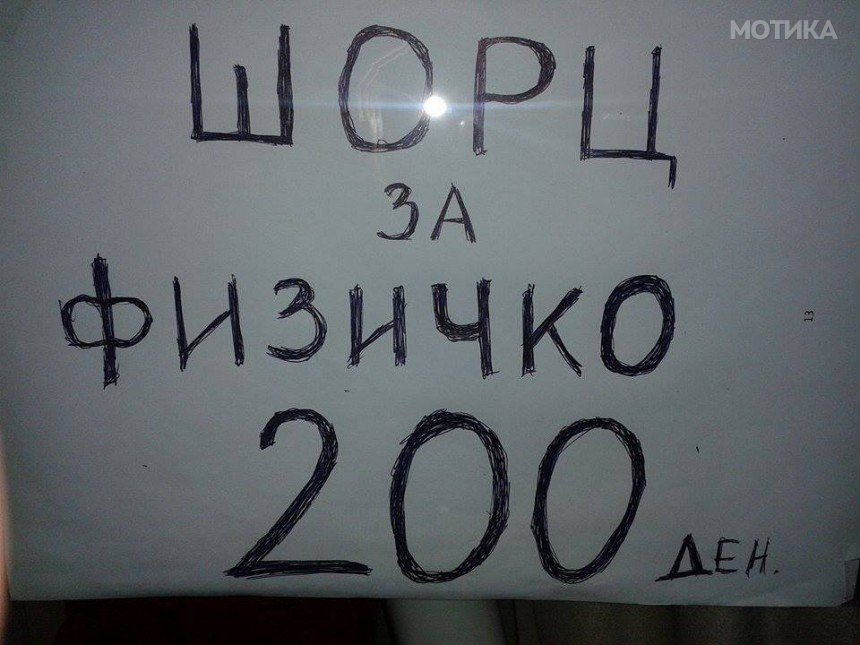 МОТИКА
ШОРЦ
ЗА
ФИЗИЧКО
13
200 ДЕН.